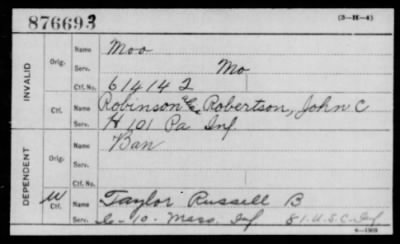 876693 (3-H-4)
INVALID
Orig. Name Moo
Serv. Mo
Ctf. No. 614142
Ctf. Name Robinson Robertson, John C
Serv. H 101 Pa Inf
DEPENDENT
Orig. Name Ban
Serv.
Ctf. No.
W Ctf. Name Taylor Russell B
Serv. G-10-Mass. Inf 81-U.S.C-Inf